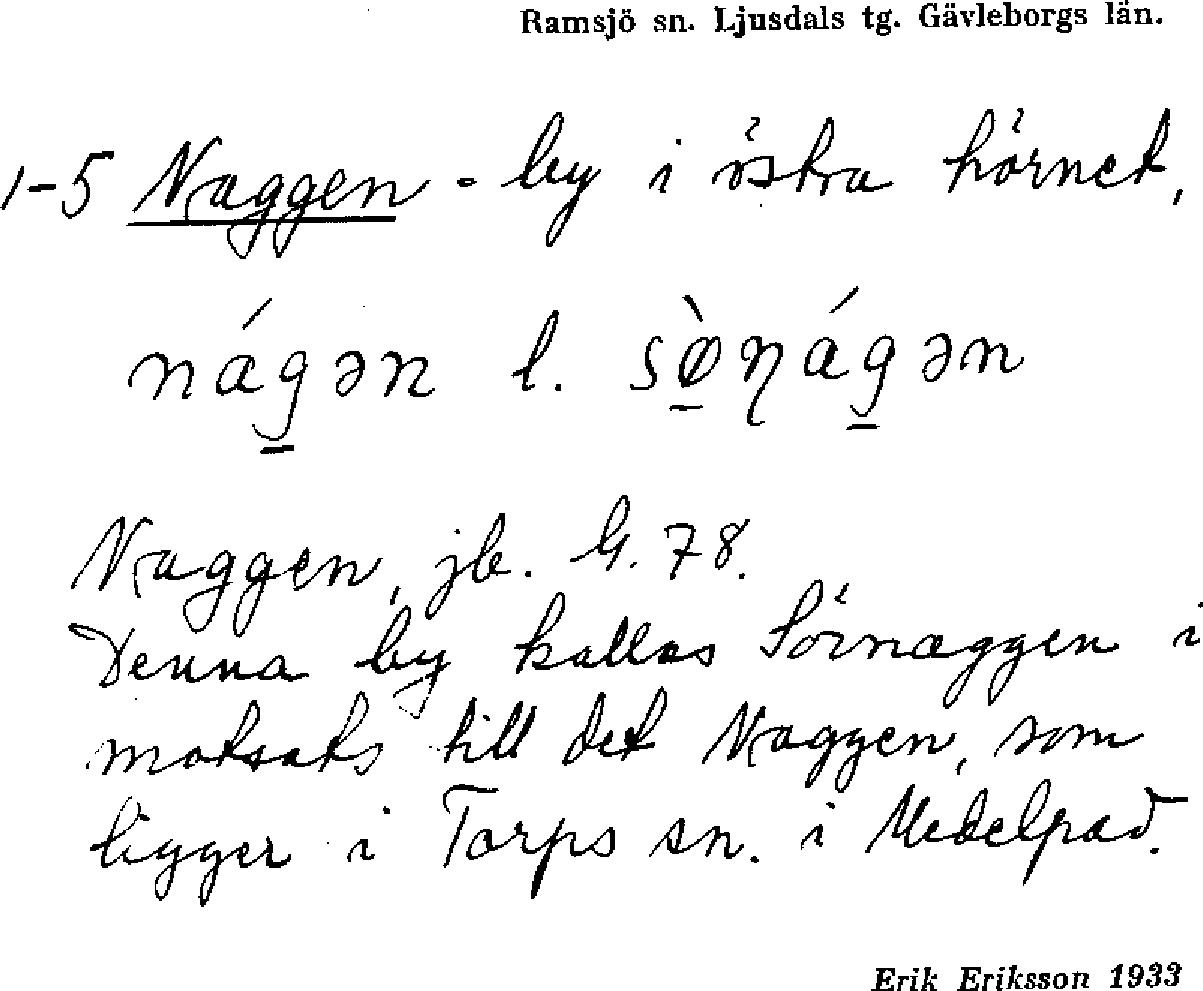 Ramsjö sn. Ljusdals tg. Gävleborgs län.
1-5 Naggen - by i östra hörnet,
nágən l. sø̀ɳágən
Naggen, jb. G. 78.
Denna by kallas Sörnaggen i
motsats till det Naggen, som
ligger i Torps sn. i Medelpad.
Erik Eriksson 1933